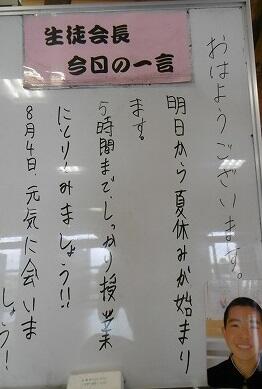 生徒会長
今日の一言
おはようございます。
明日から夏休みが始まり
ます。
5時間まで、しっかり授業
にとりくみましょう!!
8月4日、元気に会いま
しょう!